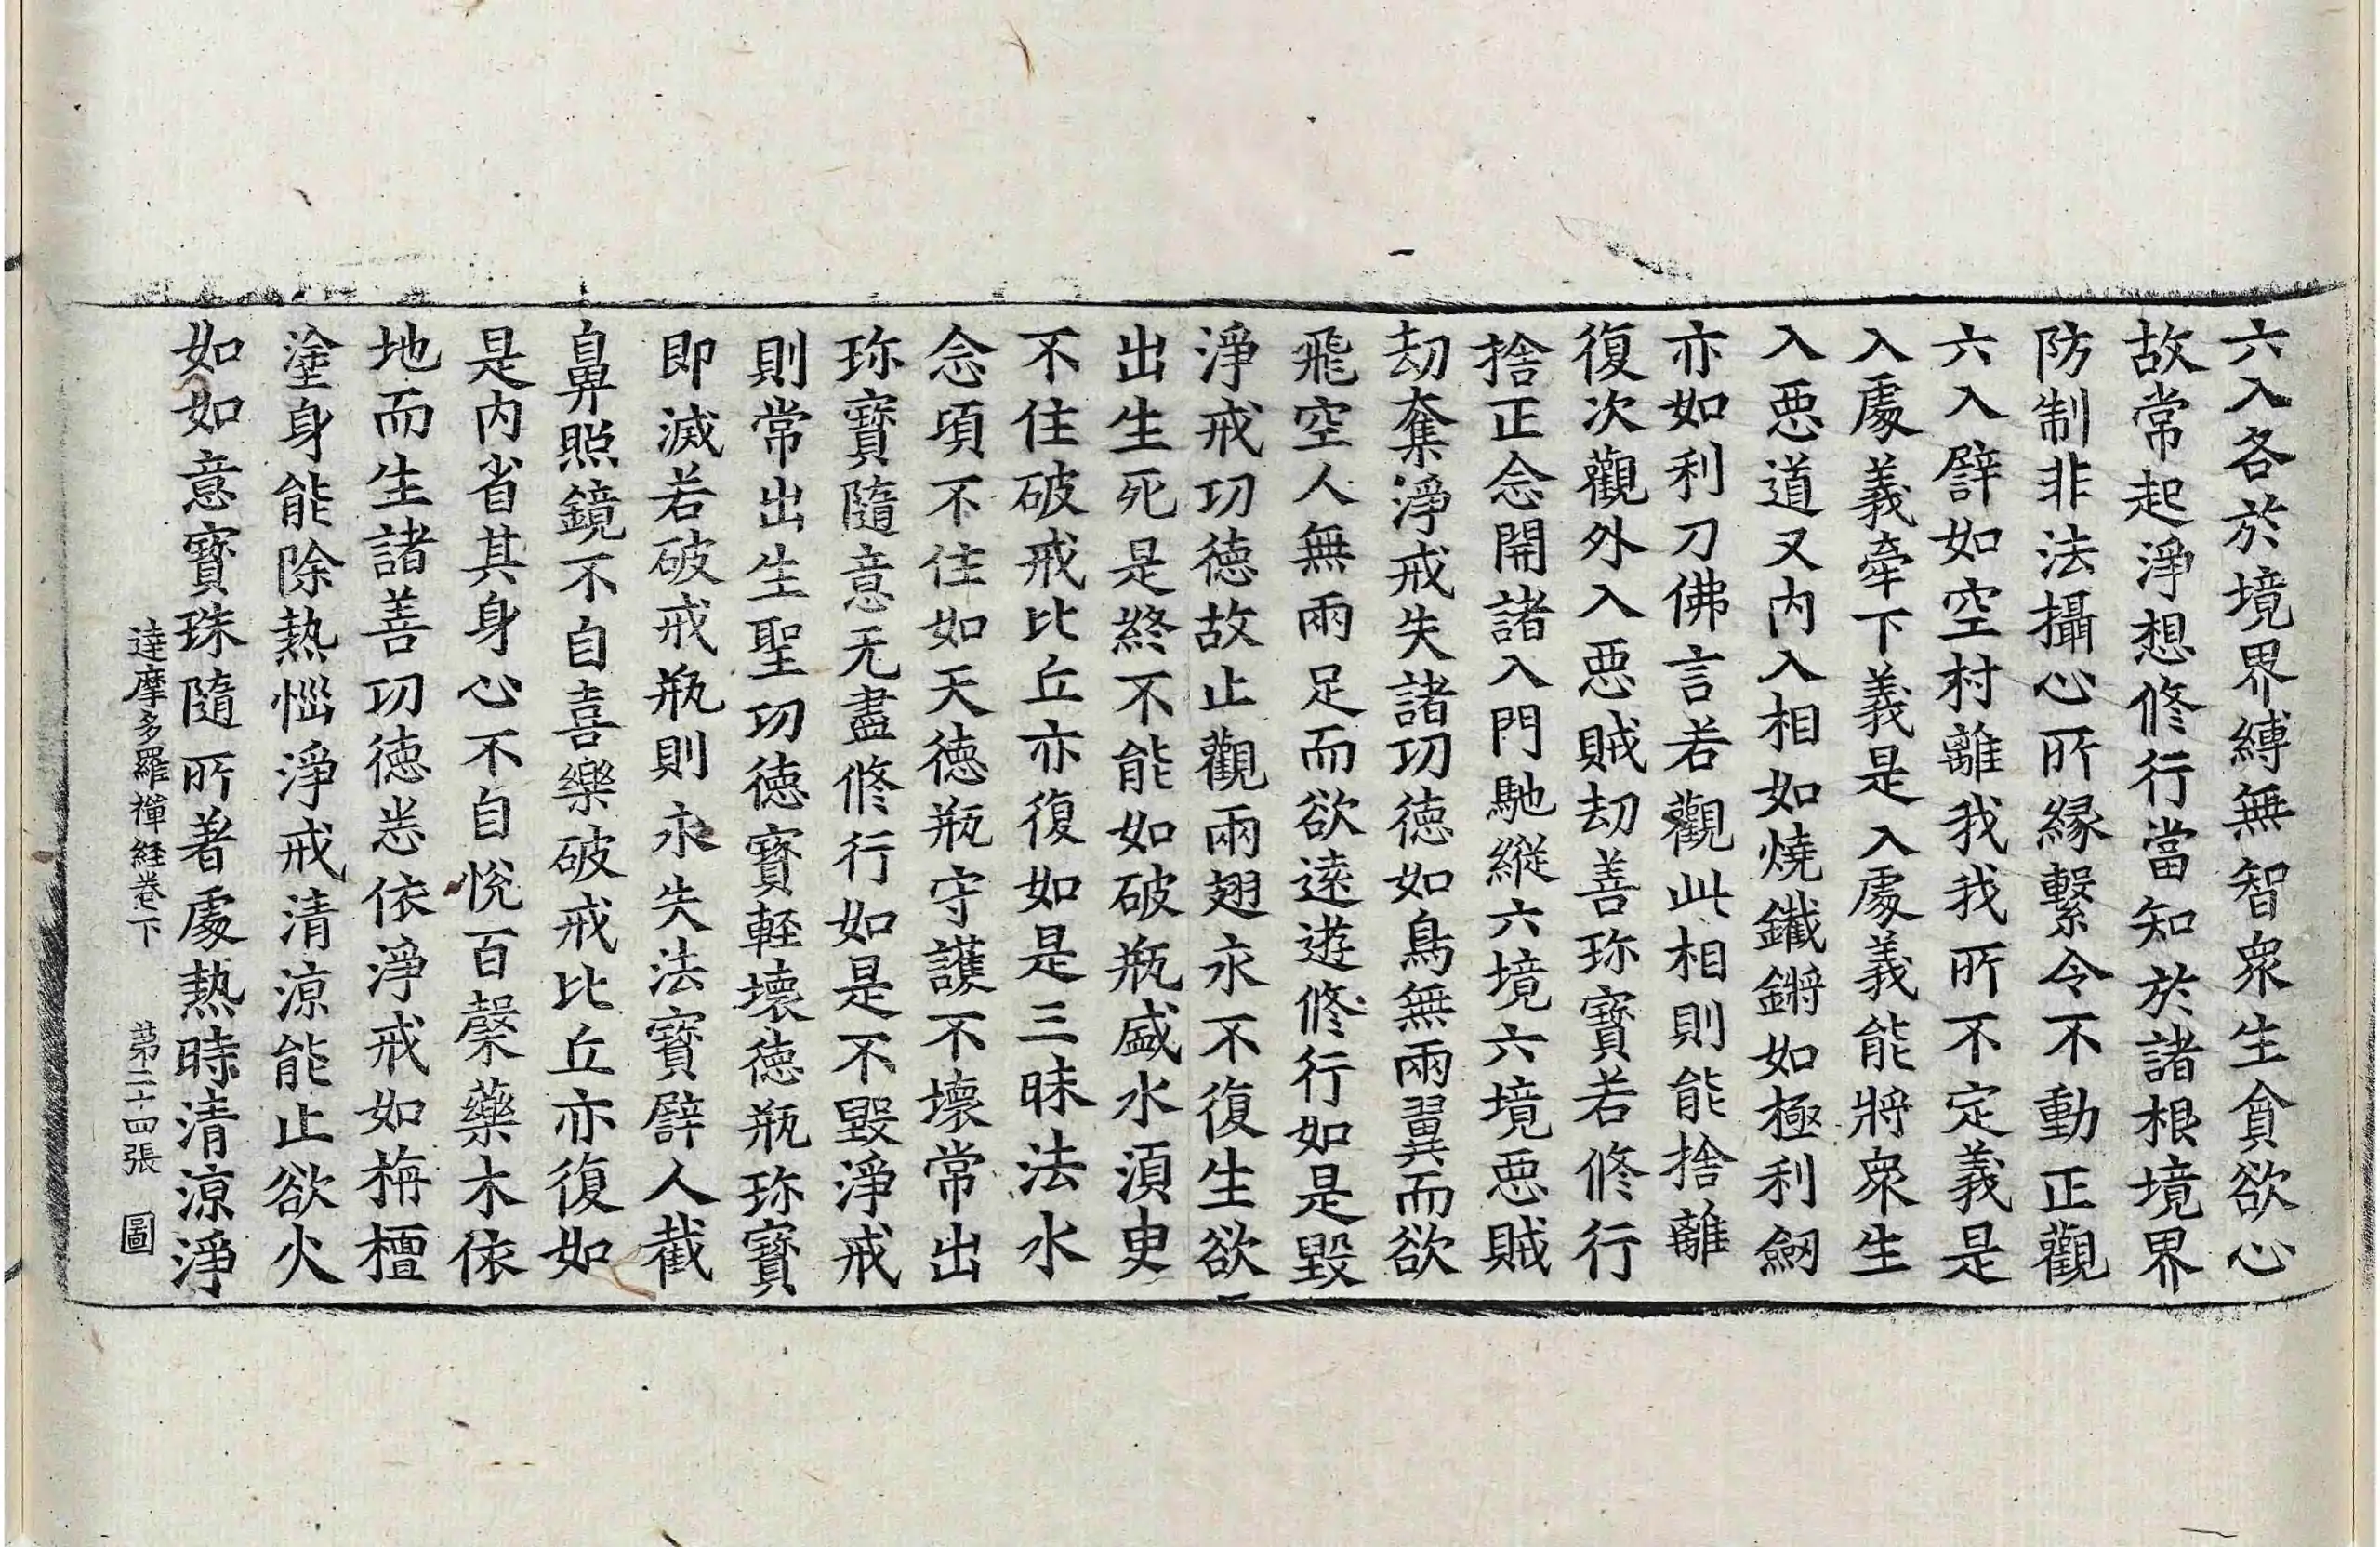 六入各於境界縛無智衆生貪欲心
故常起淨想修行當知於諸根境界
防制非法攝心所緣繫令不動正觀
六入譬如空村離我我所不定義是
入處義牽下義是入處義能將衆生
入惡道又內入相如燒鐵鏘如極利劒
亦如利刀佛言若觀此相則能捨離
復次觀外入惡賊劫善珎寶若修行
捨正念開諸入門馳縱六境六境惡賊
劫奪淨戒失諸功德如鳥無兩翼而欲
飛空人無兩足而欲遠遊修行如是毀
淨戒功德故止觀兩翅永不復生欲
出生死是終不能如破瓶盛水須臾
不住破戒比丘亦復如是三昧法水
念頃不住如天德瓶守護不壞常出
珎寶隨意无盡修行如是不毀淨戒
則常出生聖功德寶輕壞德瓶珎寶
即滅若破戒瓶則永失法寶譬人截
鼻照鏡不自喜樂破戒比丘亦復如
是內省其身心不自悅百槃藥木依
地而生諸善功德悉依淨戒如栴檀
塗身能除熱惱淨戒清涼能止欲火
如如意寶珠隨所著處熱時清涼淨
達摩多羅禪経卷下 第二十四張 圖